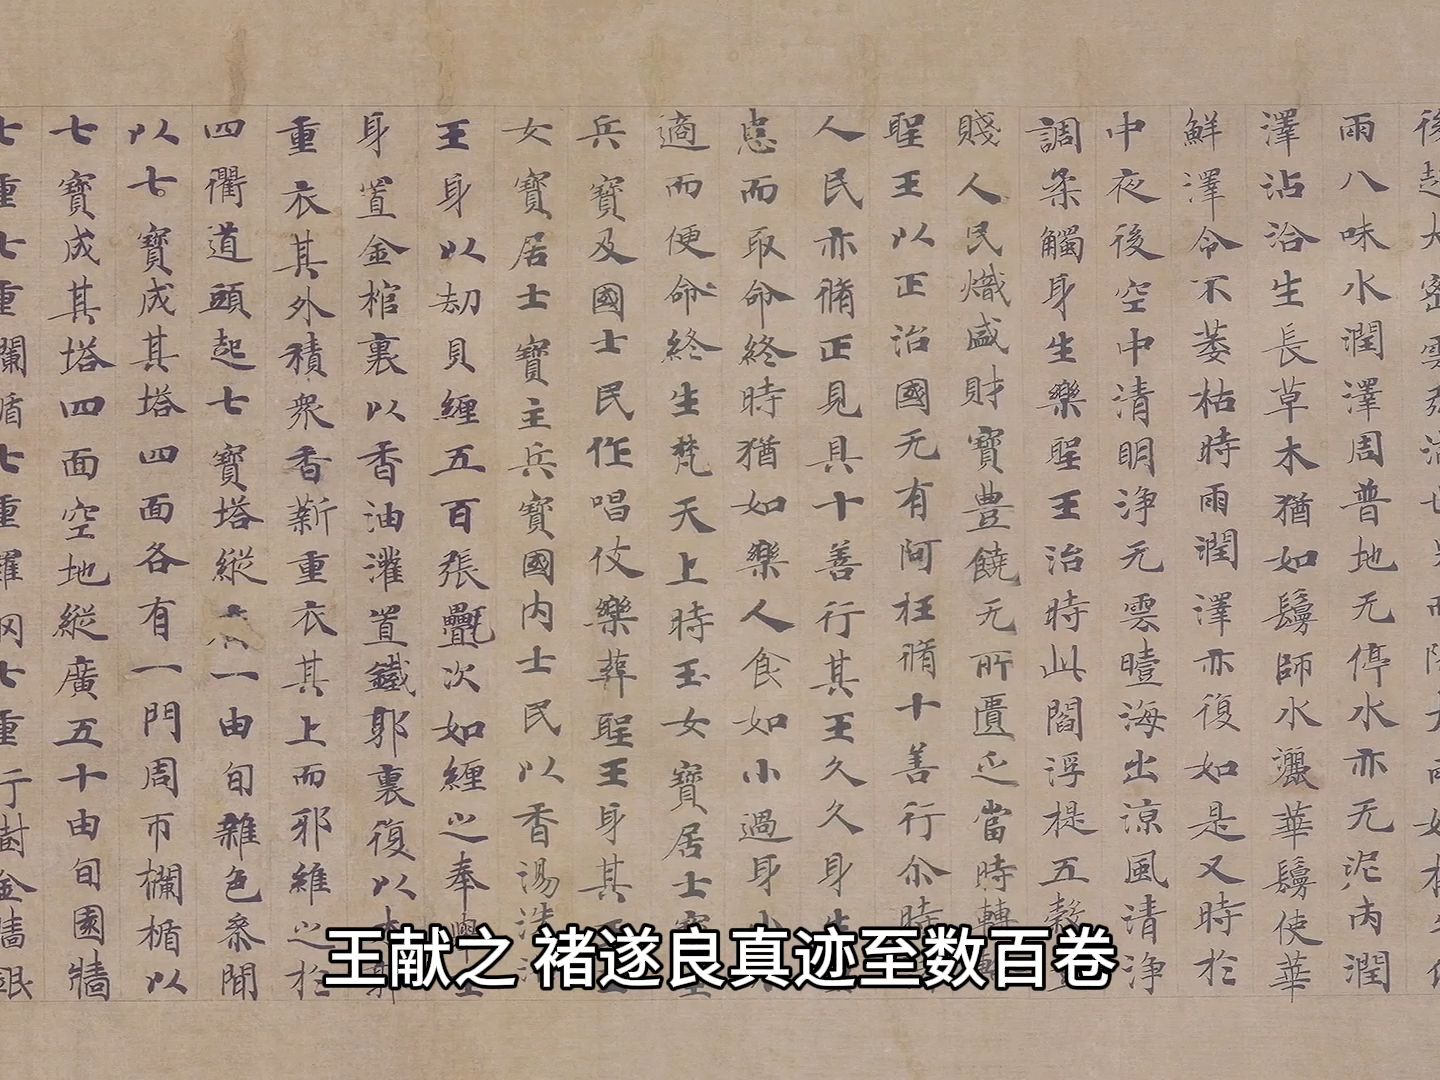 後起大密雲
雨八味水潤澤周普地无停水亦无泥内潤
澤沾洽生長草木猶如鬘師水灑華鬘使華
鮮澤令不萎枯時雨潤澤亦復如是又時於
中夜後空中清明浄无雲曀海出涼風清浄
調柔觸身生樂聖王治時此閻浮提五
賤人民熾盛財寶豊饒无所匱乏當時轉
聖王以正治國无有阿枉脩十善行尒時
人民亦脩正見具十善行其王久久身生
患而取命終時猶如樂人食如小過身小
適而便命終生梵天上時玉女寶居士寶
兵寶及國士民作唱伎樂葬聖王身其
女寶居士寶主兵寶國内士民以香湯洗
王身以劫貝纏五百張疊次如纏之奉
身置金棺裏以香油灌置鐵郭裏復以木郭
重衣其外積衆香薪重衣其上而耶維之於
四衢道頭起七寶塔縱一由旬雜色参間
以七寶成其塔四面各有一門周帀欄楯以
七寶成其塔四面空地縱廣五十由旬園牆
七重七重欄楯七重羅网七重行樹金牆銀
王献之 褚遂良真迹至数百卷